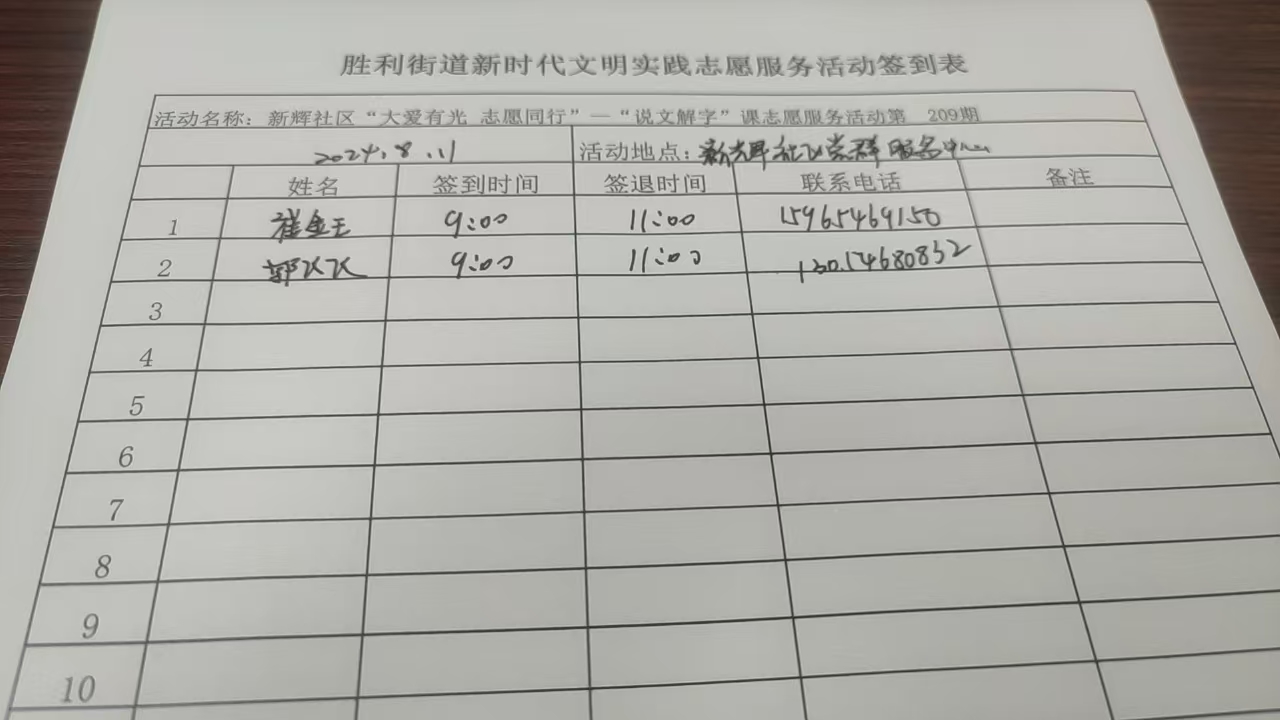 胜利街道新时代文明实践志愿服务活动签到表
活动名称：新辉社区“大爱有光 志愿同行”—“说文解字”课志愿服务活动第 209期
2024.8.11 活动地点：新辉社区党群服务中心
姓名 签到时间 签退时间 联系电话 备注
1 崔金玉 9:00 11:00 15965469150
2 郭 9:00 11:00
3
4
5
6
7
8
9
10